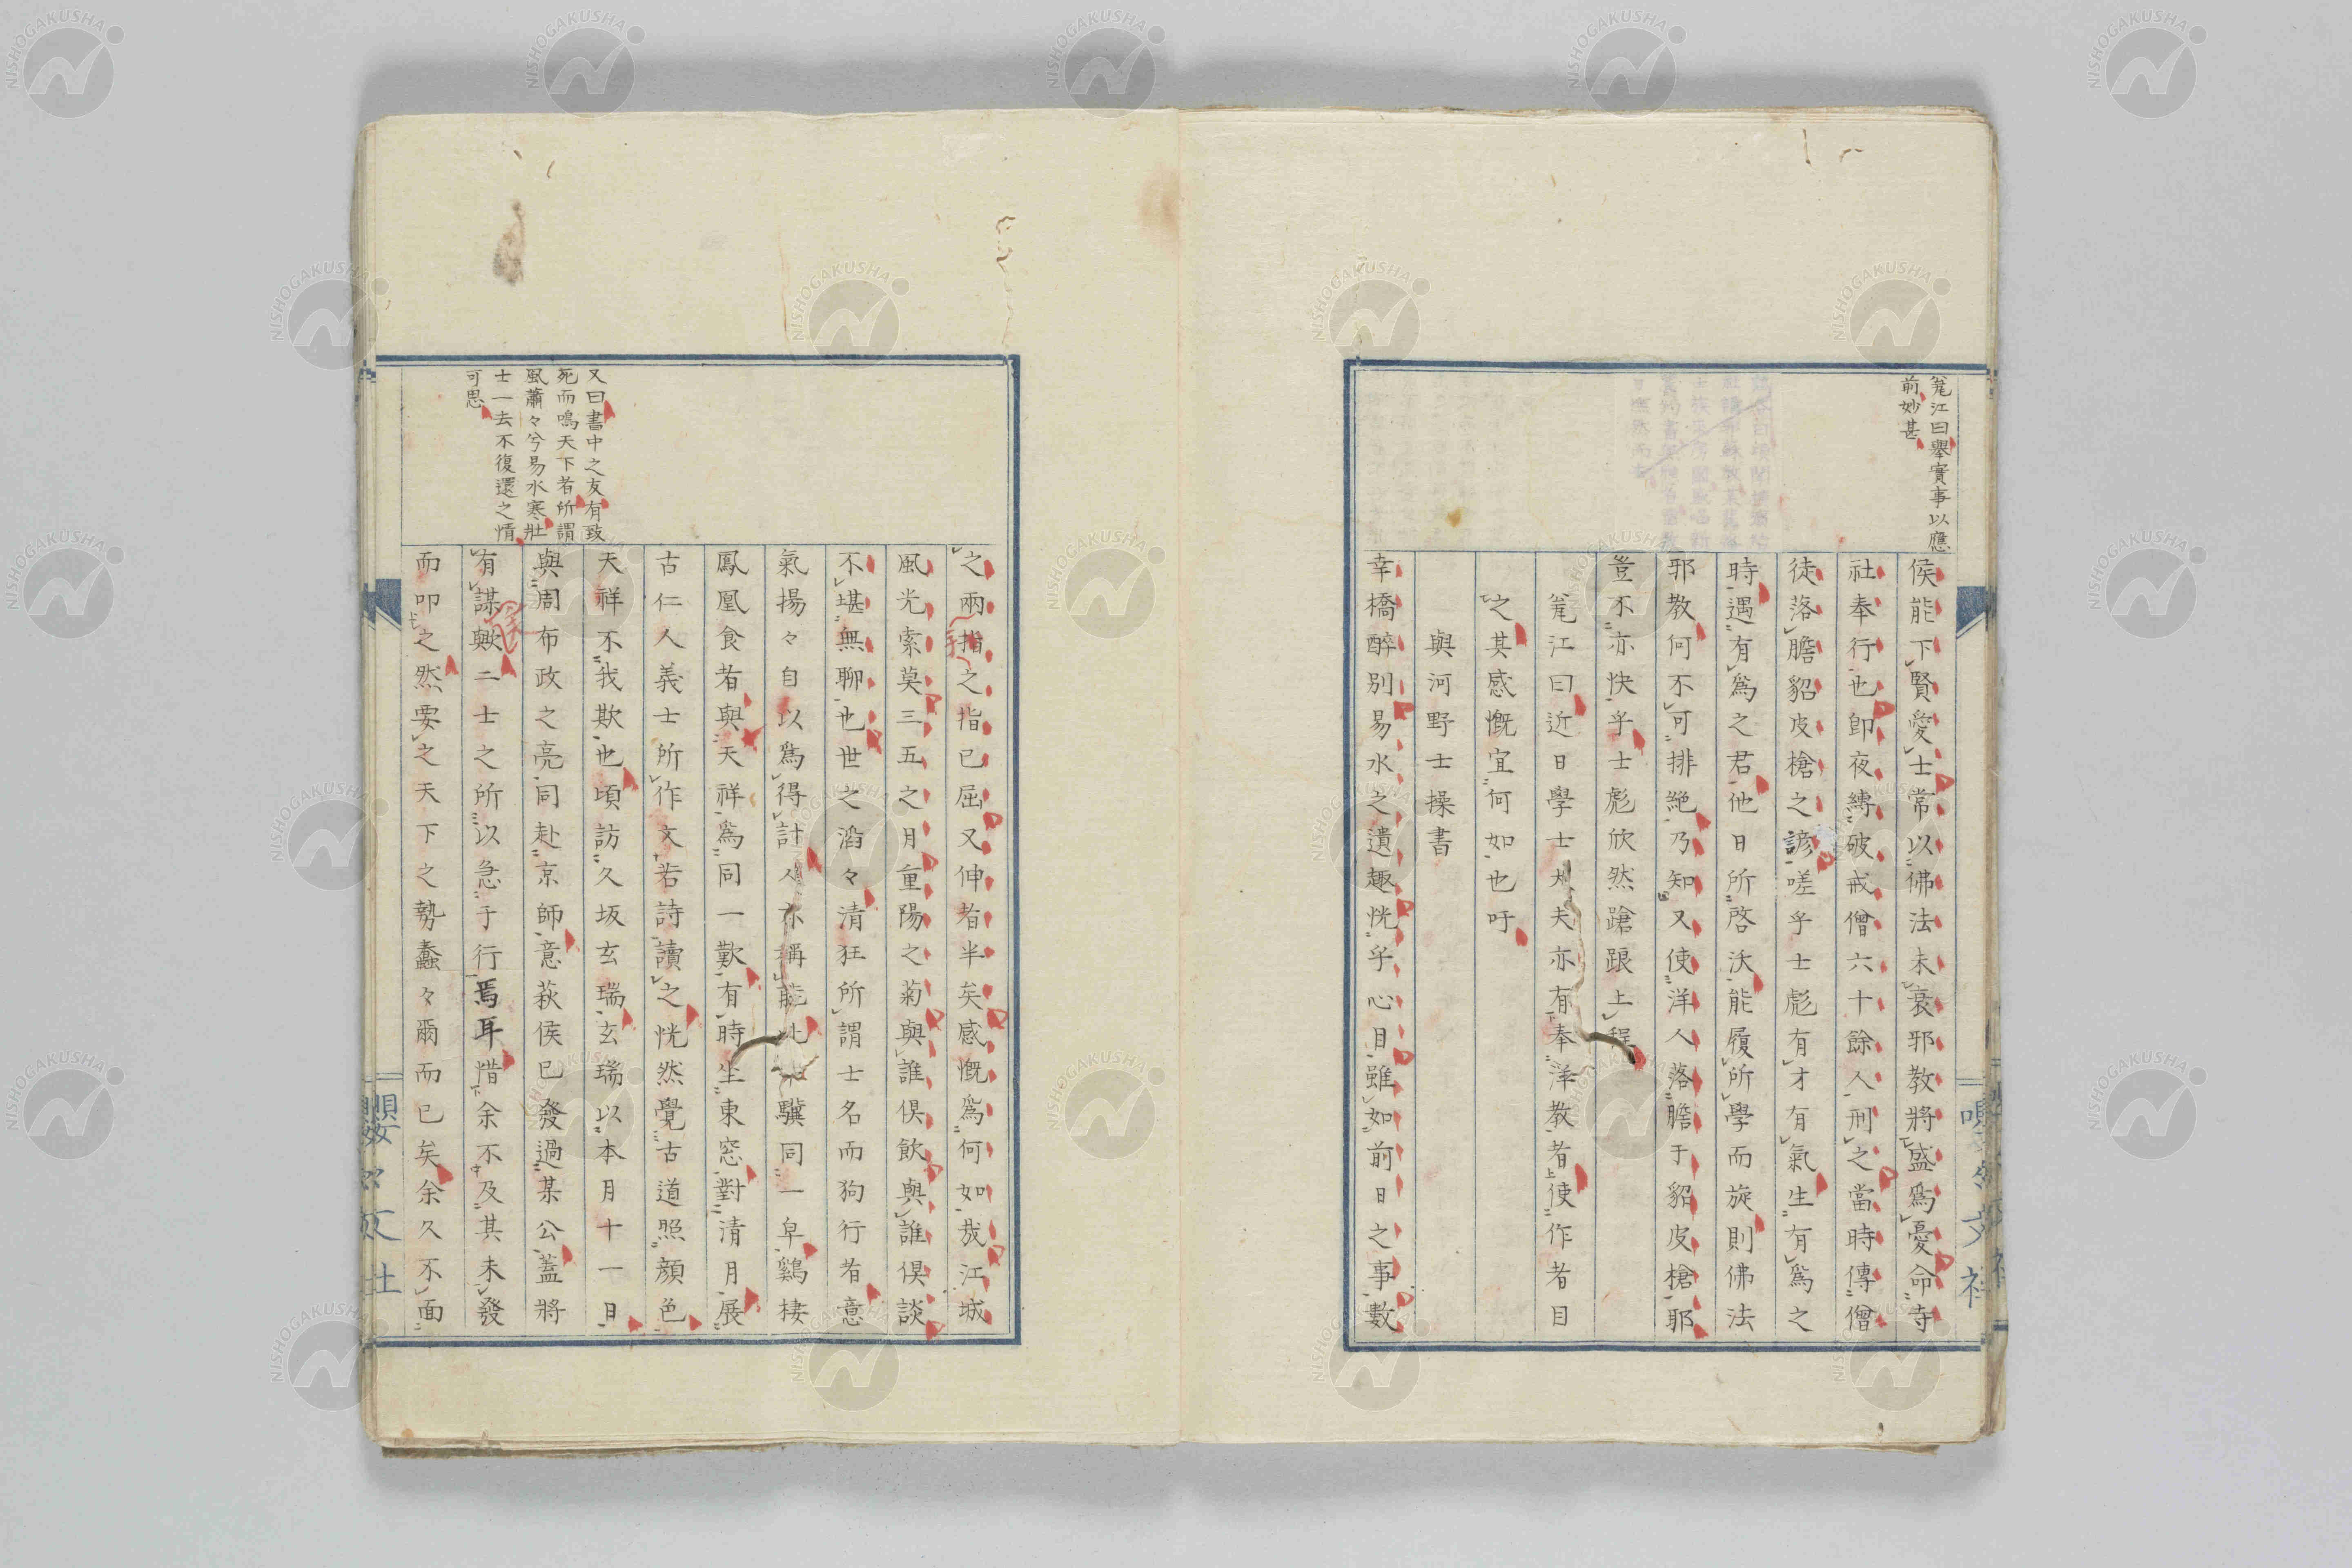 侯能下賢愛士常以佛法未衰邪教將盛爲憂命寺
社奉行也卽夜縛破戒僧六十餘人刑之當時傳僧
徒落膽貂皮槍之諺嗟乎士彪有才有氣生有爲之
時遇有爲之君他日所啓沃能履所學而旋則佛法
邪教何不可排絶乃知又使洋人落膽于貂皮槍耶
豈不亦快乎士彪欣然蹌踉上程
毱江曰近日學士大夫亦有奉洋教者使作者目
之其感慨宜何如也吁
與河野士操書
幸橋醉別易水之遺趣恍乎心目雖如前日之事數
毱江曰舉實事以應
前妙甚
之兩指之指已屈又伸者半矣感慨爲何如哉江城
風光索莫三五之月重陽之菊與誰俱飲與誰俱談
不堪無聊也世之滔々清狂所謂士名而狗行者意
氣揚々自以爲得計人亦稱驥同一皁鷄棲
鳳凰食者與天祥爲同一歎有時坐東窓對清月展
古仁人義士所作文若詩讀之恍然覺古道照顔色
天祥不我欺也頃訪久坂玄瑞玄瑞以本月十一日
與周布政之亮同赴京師意萩侯已發過某公蓋將
有謀歟二士之所以急于行焉耳惜余不及其未發
而叩之然要之天下之勢蠢々爾而已矣余久不面
又曰書中之友有致
死而鳴天下者所謂
風蕭々兮易水寒壯
士一去不復還之情
可思
嚶々文社
NISHOGAKUSHA